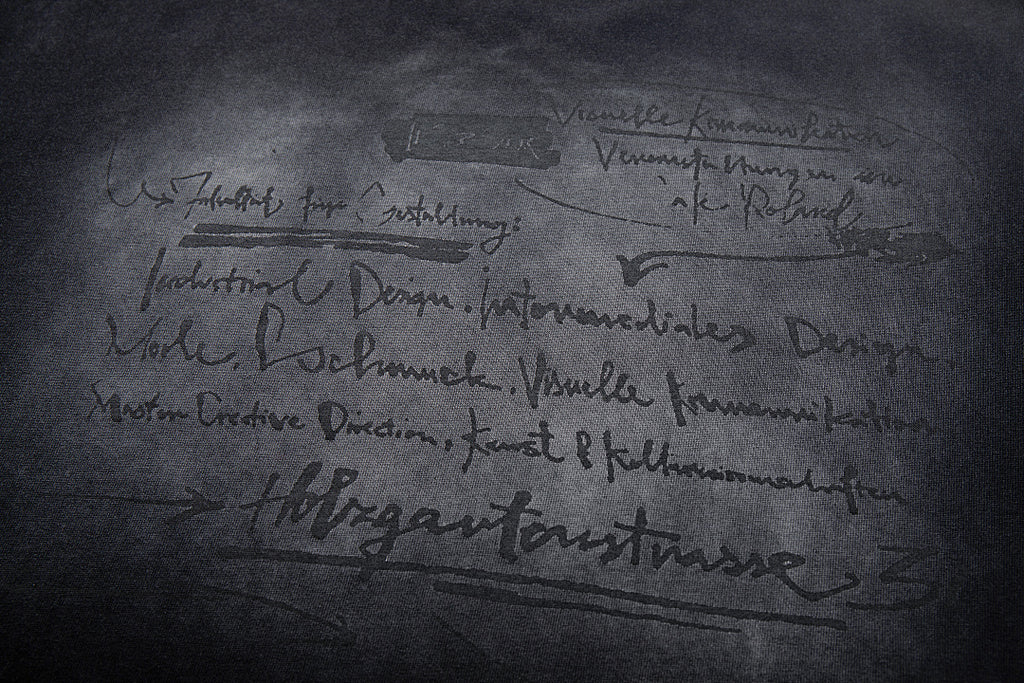 Visuelle Kommunikation
Veranstaltungen
Roland
Fakultät für Gestaltung:
Industrial Design, Intermediales Design,
Mode, Schmuck, Visuelle Kommunikation
Master Creative Direction, Kunst & Kulturwissenschaften
Holzgartenstrasse 3